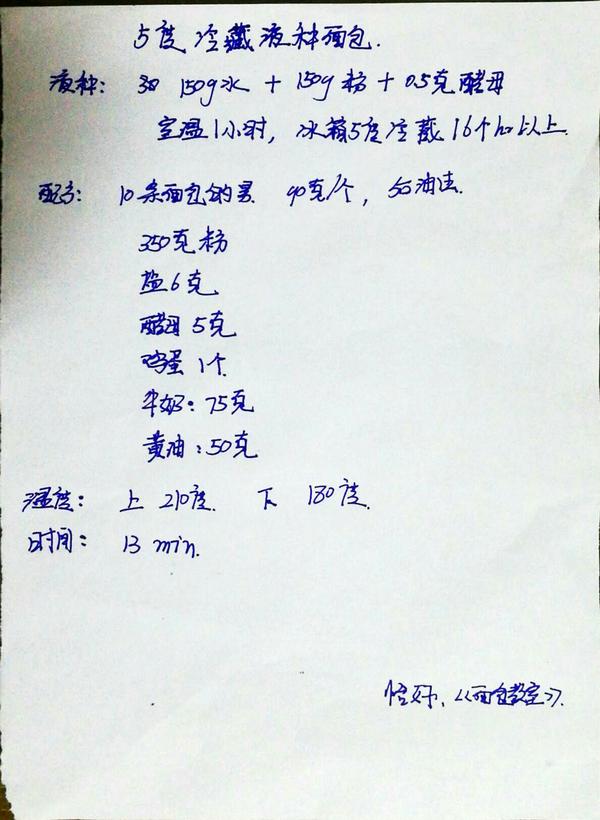 5度冷藏液种面包.
液种: 150g水 + 150g粉 + 0.5克酵母
室温1小时, 冰箱5度冷藏16个h以上.
配方: 10条面包的量 90克/个, 后油法.
350克粉
盐6克
酵母 5克
鸡蛋 1个.
牛奶: 75克
黄油: 50克
温度: 上 210度. 下 180度.
时间: 13 min.
恰好.《面包教室》.